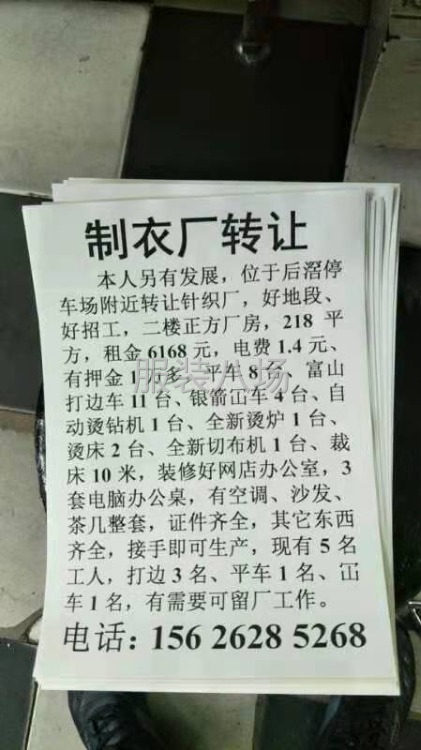 制衣厂转让
本人另有发展，位于后滘停
车场附近转让针织厂，好地段、
好招工，二楼正方厂房，218 平
方，租金 6168 元，电费 1.4 元、
有押金 1 万多、平车 8 台、富山
打边车 11 台、银箭冚车 4 台、自
动烫钻机 1 台、全新烫炉 1 台、
烫床 2 台、全新切布机 1 台、裁
床 10 米，装修好网店办公室，3
套电脑办公桌，有空调、沙发、
茶几整套，证件齐全，其它东西
齐全，接手即可生产，现有 5 名
工人，打边 3 名、平车 1 名、冚
车 1 名，有需要可留厂工作。
电话：156 2628 5268
服装八场